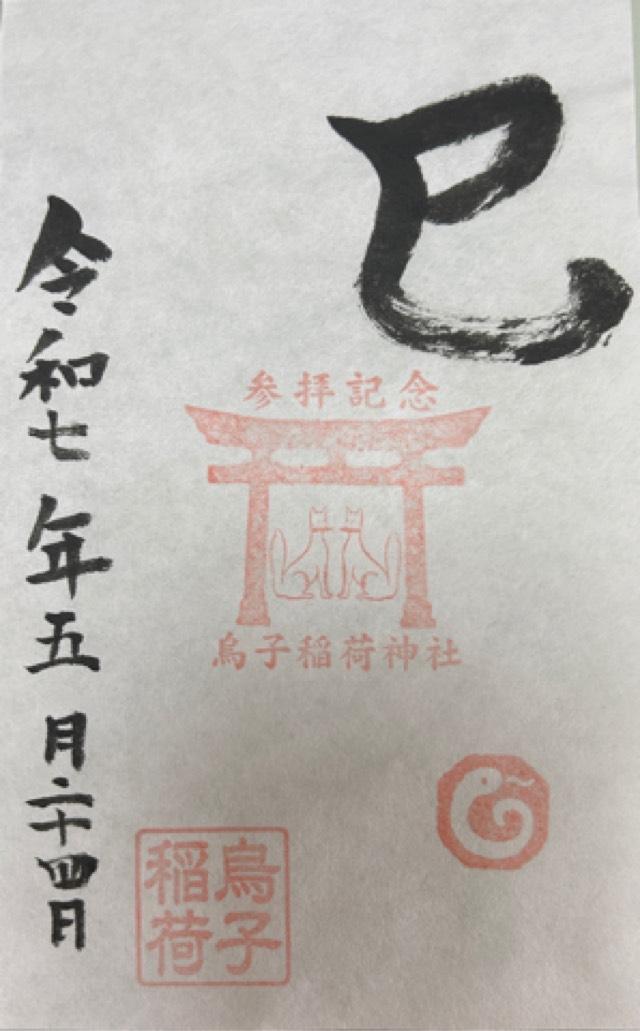 巳
参拝記念
烏子稲荷神社
烏子
稲荷
令和七年五月二十四日